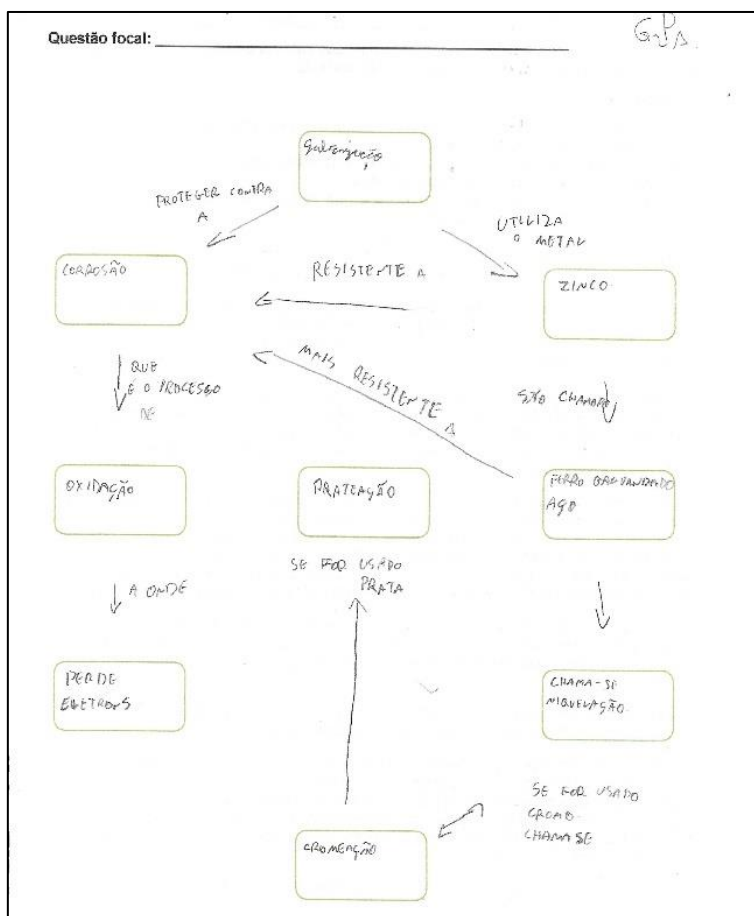 Questão focal:
GPA
Galvanização
PROTEGER CONTRA
A
UTILIZA
O METAL
CORROSÃO
RESISTENTE A
ZINCO
QUE
É O PROCESSO
DE
MAIS RESISTENTE A
SÃO CHAMADO
OXIDAÇÃO
PRATEAÇÃO
FERRO GALVANIZADO
AÇO
SE FOR USADO
PRATA
A ONDE
PERDE
ELETRONS
CHAMA-SE
NIQUELAÇÃO
SE FOR USADO
CROMO
CHAMA SE
CROMEAÇÃO